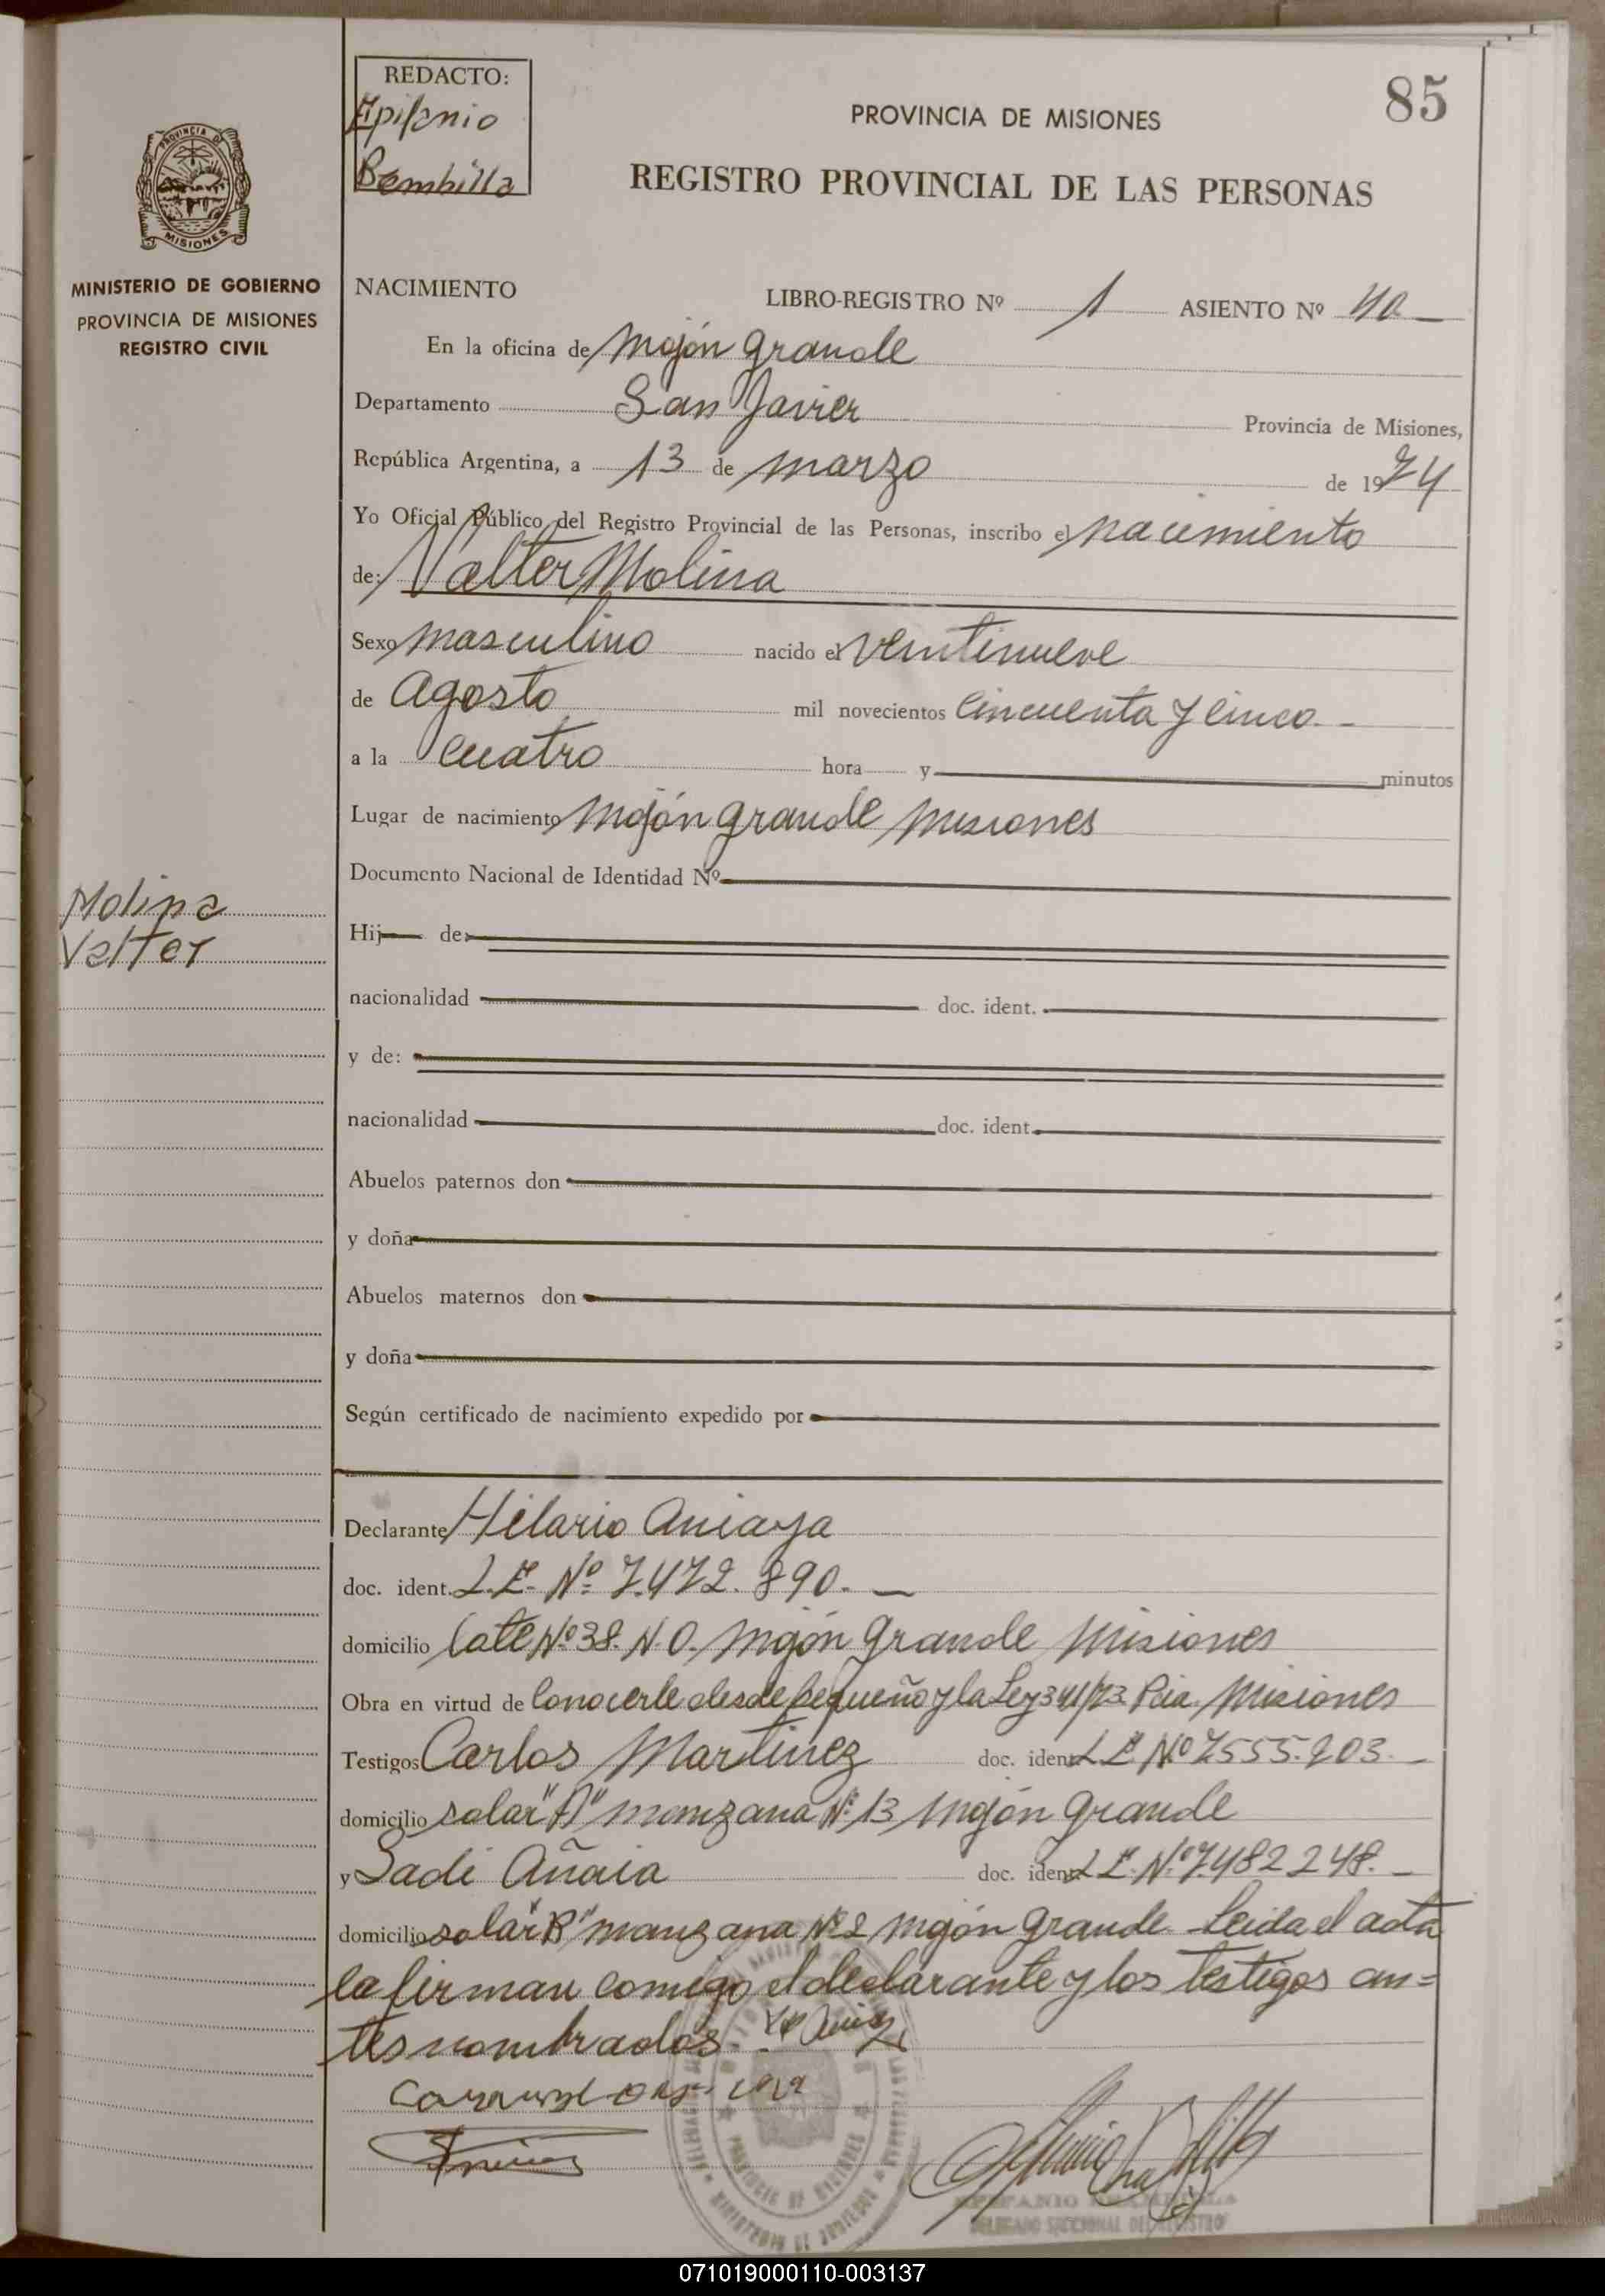 REDACTO:
Epifanio
Bembilla
85
PROVINCIA DE MISIONES
REGISTRO PROVINCIAL DE LAS PERSONAS
PROVINCIA DE
MISIONES
MINISTERIO DE GOBIERNO
PROVINCIA DE MISIONES
REGISTRO CIVIL
NACIMIENTO LIBRO-REGISTRO Nº 1 ASIENTO Nº 40
En la oficina de Mojón grande
Departamento San Javier Provincia de Misiones,
República Argentina, a 13 de marzo de 1974
Yo Oficial Público del Registro Provincial de las Personas, inscribo el nacimiento
de: Valter Molina
Sexo masculino nacido el veintinueve
de agosto mil novecientos cincuenta y cinco.-
a la cuatro hora y minutos
Lugar de nacimiento Mojón grande Misiones
Documento Nacional de Identidad Nº
Molina
Valter
Hij de:
nacionalidad doc. ident.
y de:
nacionalidad doc. ident.
Abuelos paternos don
y doña
Abuelos maternos don
y doña
Según certificado de nacimiento expedido por
Declarante Hilario Aniaya
doc. ident. L.E. Nº 7.472.890.-
domicilio Lote Nº 38. N.O. Mojón grande Misiones
Obra en virtud de conocerle desde pequeño y la Ley 341/73 Pcia. Misiones
Testigos Carlos Martinez doc. ident. L.E Nº 7555.203.-
domicilio solar "A" manzana Nº 13 Mojón grande
y Sadi Añaia doc. ident. L.E. Nº 7.482248.-
domicilio solar "B" manzana Nº 2 Mojón grande. Leida el acta
la firman comigo el declarante y los testigos an=
tes nombrados.
PROVINCIA DE MISIONES
DELEGADO SECCIONAL DEL REGISTRO
071019000110-003137